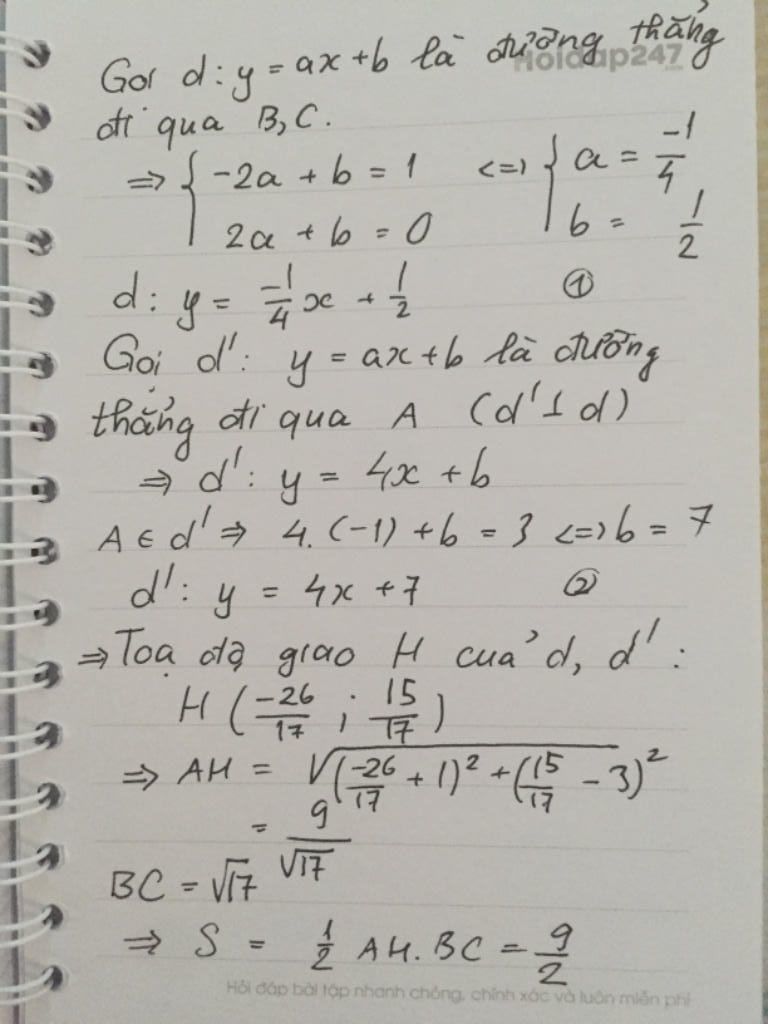 Gọi d: y = ax + b là đường thẳng
Hoidap247
đi qua B, C.
⇒ { -2a + b = 1 <=> { a = -1/4
2a + b = 0 b = 1/2
d: y = -1/4 x + 1/2 ①
Gọi d': y = ax + b là đường
thẳng đi qua A (d' ⊥ d)
⇒ d': y = 4x + b
A ∈ d' ⇒ 4. (-1) + b = 3 <=> b = 7
d': y = 4x + 7 ②
⇒ Toạ độ giao H của d, d' :
H ( -26/17 ; 15/17 )
⇒ AH = √( (-26/17 + 1)² + (15/17 - 3)² )
= 9/√17
BC = √17
⇒ S = 1/2 AH. BC = 9/2
Hỏi đáp bài tập nhanh chóng, chính xác và luôn miễn phí